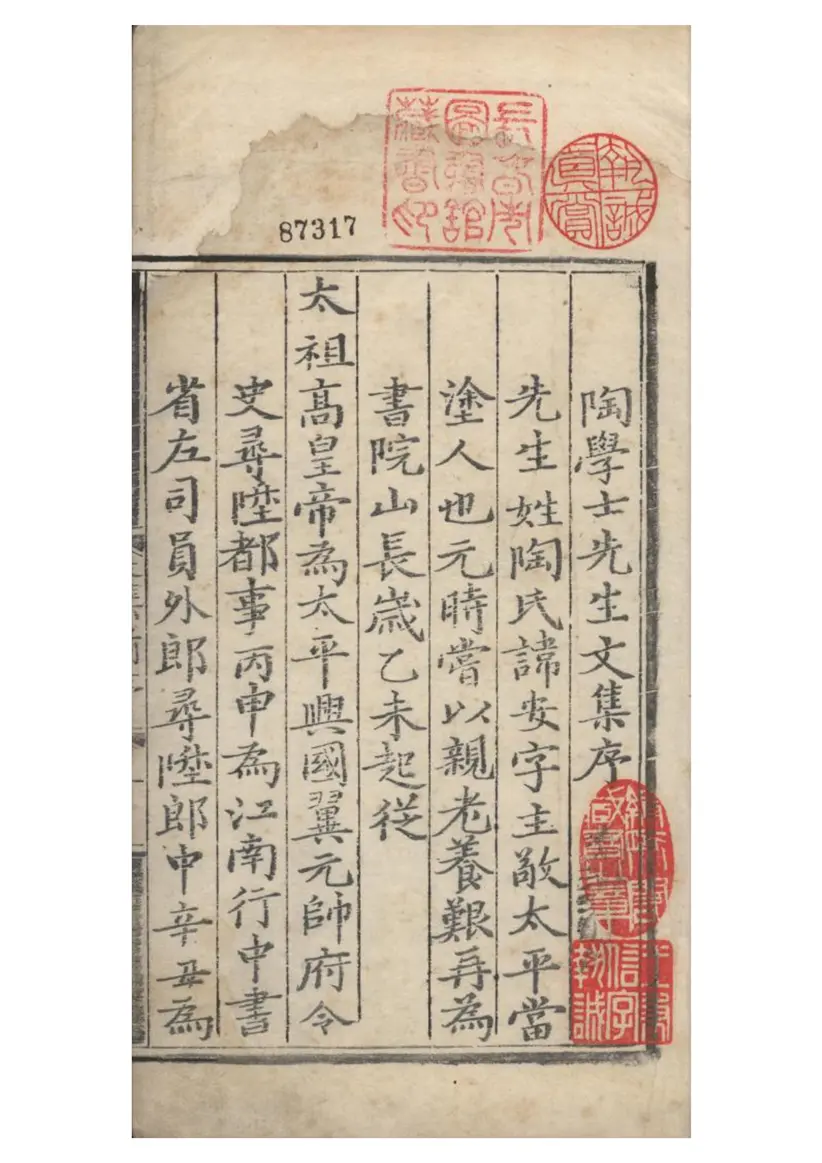 87317
長春市圖書館藏書印
執誠真賞
陶學士先生文集序
先生姓陶氏諱安字主敬太平當
塗人也元時嘗以親老養艱再為
書院山長歲乙未起從
太祖髙皇帝為太平興國翼元帥府令
史尋陞都事丙申為江南行中書
省左司員外郎尋陞郎中辛丑為